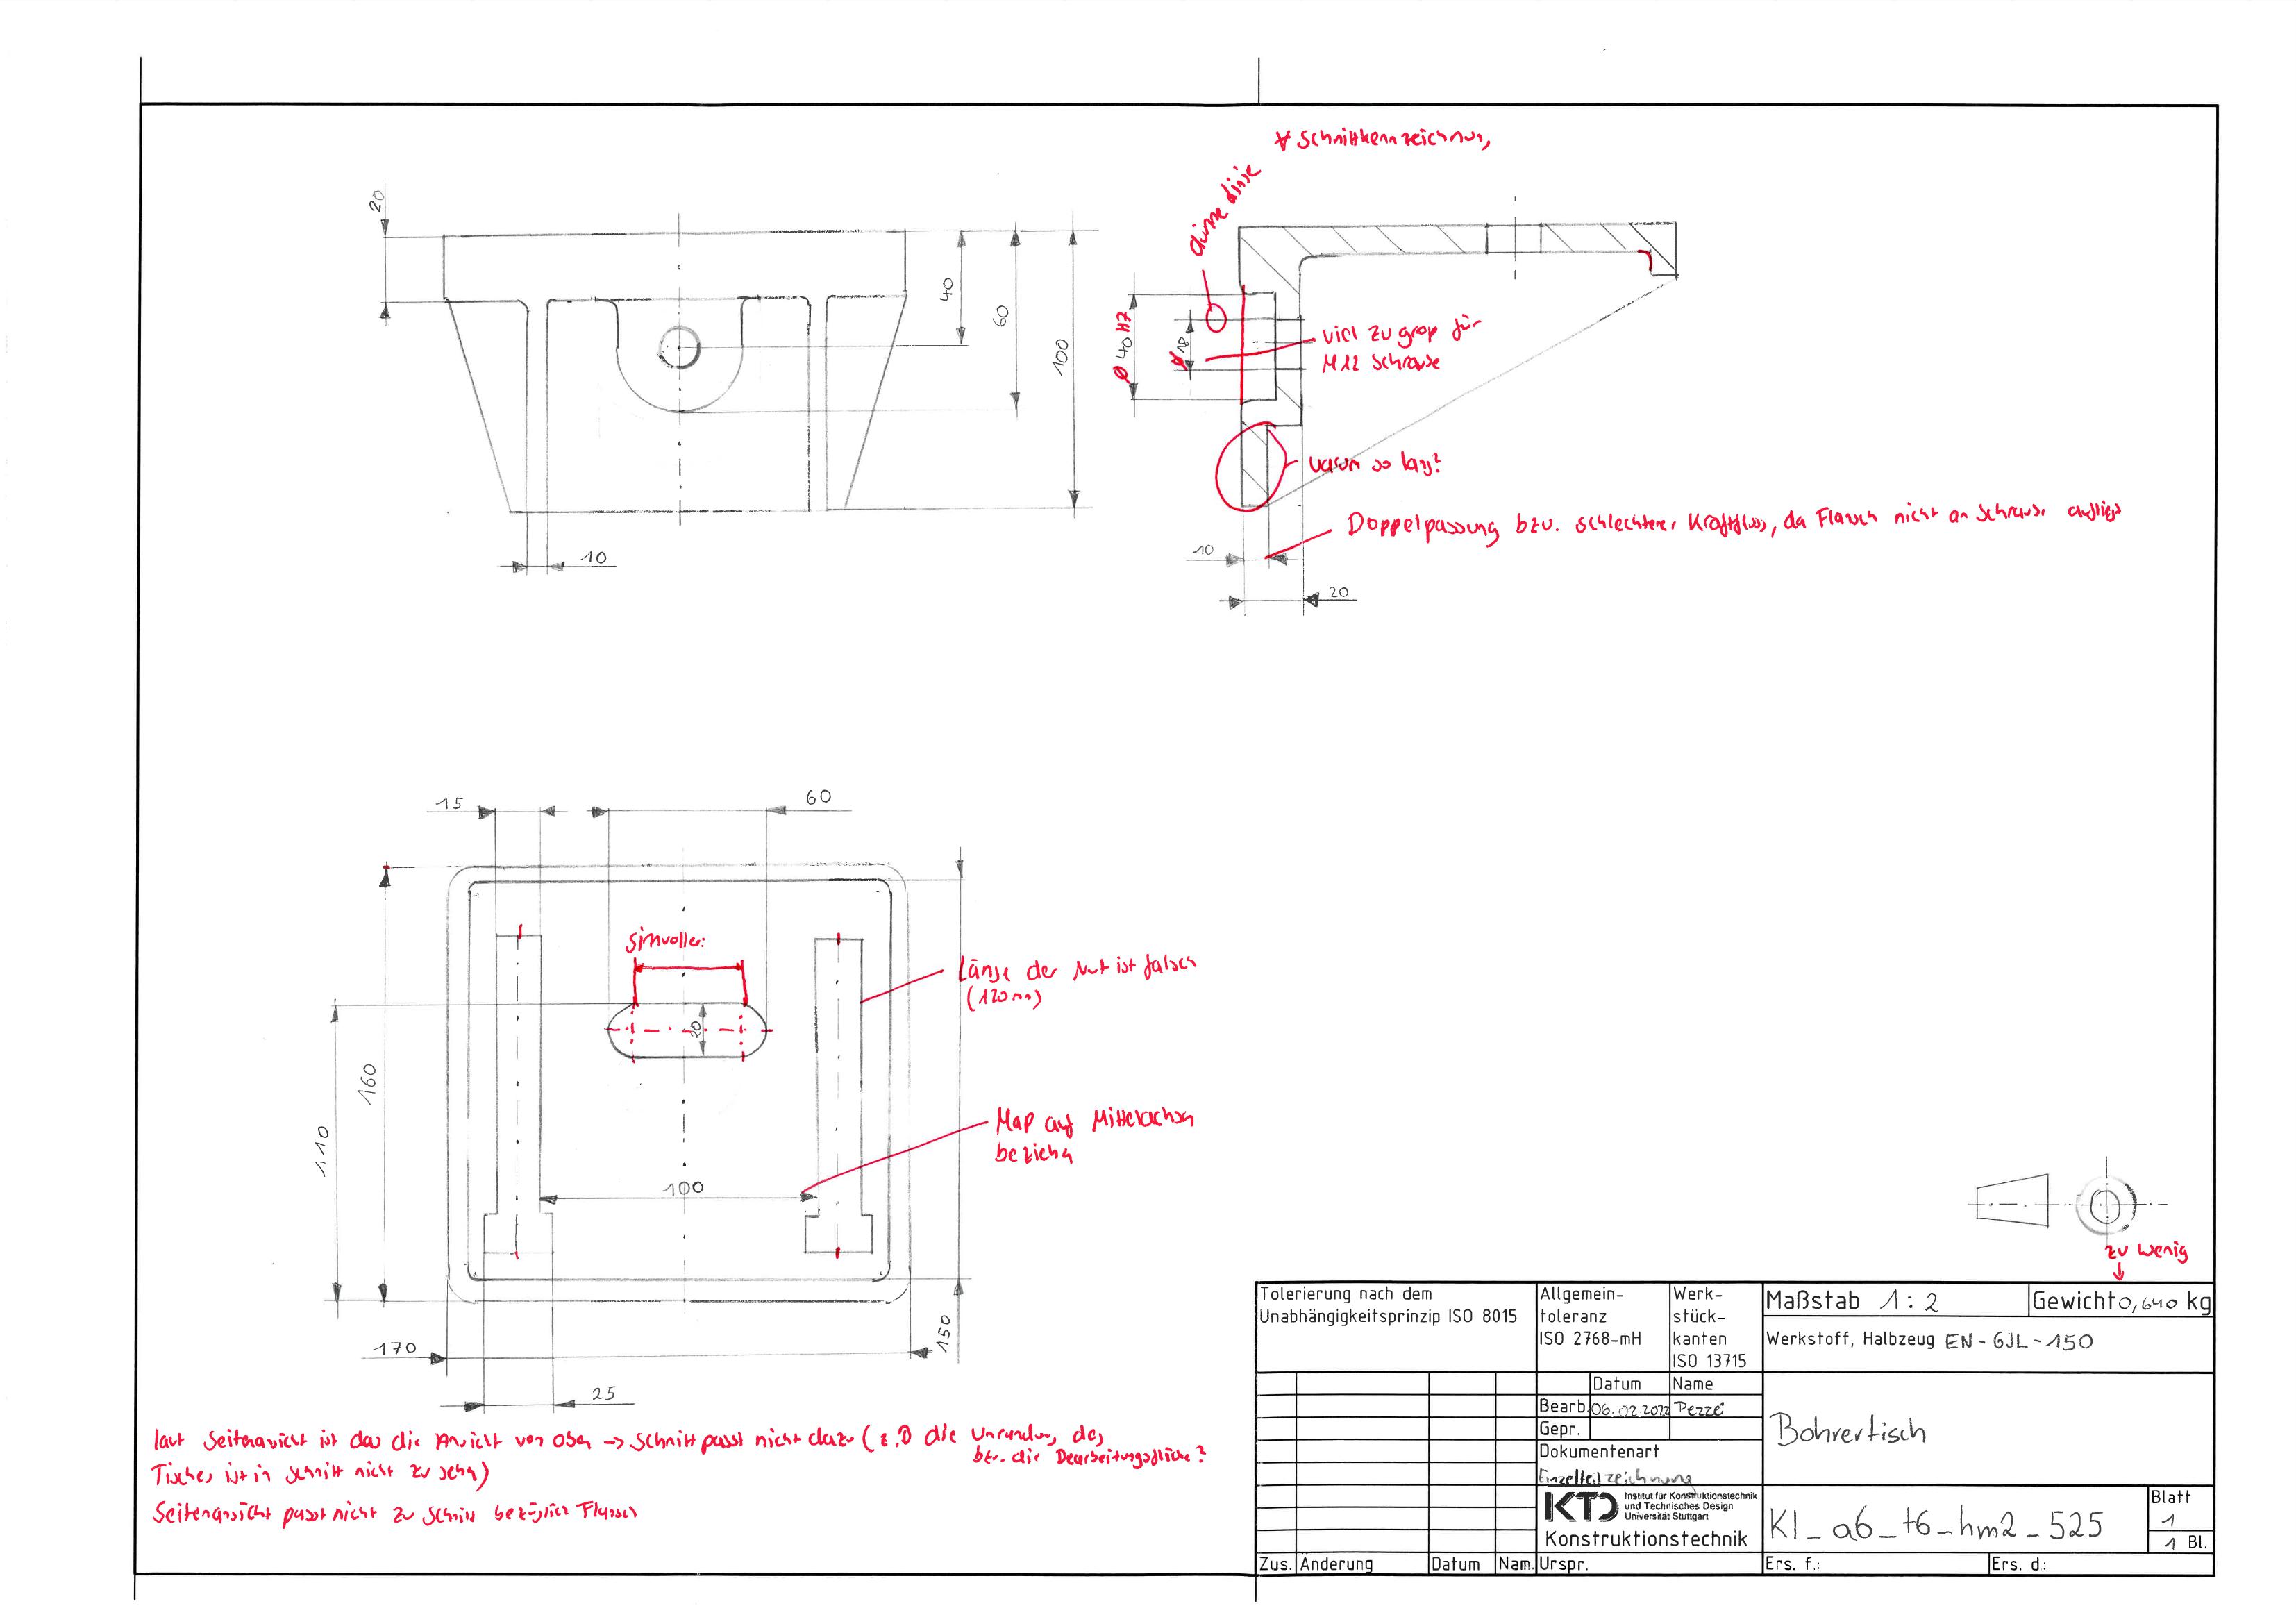 ∀ Schnittkennzeichnung
dünne Linie
20
40
60
100
10
⌀ 40 H7
⌀ 18
viel zu groß für
M12 Schraube
warum so lang?
Doppelpassung bzw. schlechterer Kraftfluss, da Flansch nicht an Schraube aufliegt
10
20
15
60
sinnvoller:
20
Länge der Nut ist falsch
(120mm)
160
110
Maß auf Mittelachsen
beziehen
100
150
170
25
laut Seitenansicht ist das die Ansicht von oben -> Schnitt passt nicht dazu (z.B die Umrandung des
bzw. die Bearbeitungsfläche?
Tisches ist in Schnitt nicht zu sehen)
Seitenansicht passt nicht zu Schnitt bezüglich Flansch
zu wenig
Tolerierung nach dem
Unabhängigkeitsprinzip ISO 8015
Allgemein-
toleranz
ISO 2768-mH
Werk-
stück-
kanten
ISO 13715
Maßstab 1:2
Gewicht 0,640 kg
Werkstoff, Halbzeug EN-GJL-150
Datum Name
Bearb. 06.02.2022
Gepr.
Dokumentenart
Einzelteilzeichnung
Bohrertisch
KTD
Institut für Konstruktionstechnik
und Technisches Design
Universität Stuttgart
Konstruktionstechnik
Kl_a6_t6_hm2_525
Blatt
1
1 Bl.
Zus. Änderung Datum Nam. Urspr. Ers. f.: Ers. d.: